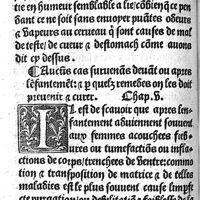 tie en humeur semblable a lie: cõbien ce pen
dant ce ne soit sans enuoyer puãtes odeurs
& vapeurs au cerueau q̃ sont causes de mal
de teste / de cueur & destomach cõme auons
dit cy dessus.
¶Aucũs cas suruenãs deuãt ou apres
lẽfantemẽt: & p quelz remedes on les doit
preuenir & curer. Chap. v.
IL est de scauoir que apres len
fantement aduiennent souuent
aux femmes acouchees fie
ures ou tumefactiõs ou infla
ctions de corps / trenchees de ventre: commo
tion & transposition de matrice & de telles
maladies est le plus souuent cause limpfe
cte purgation ou